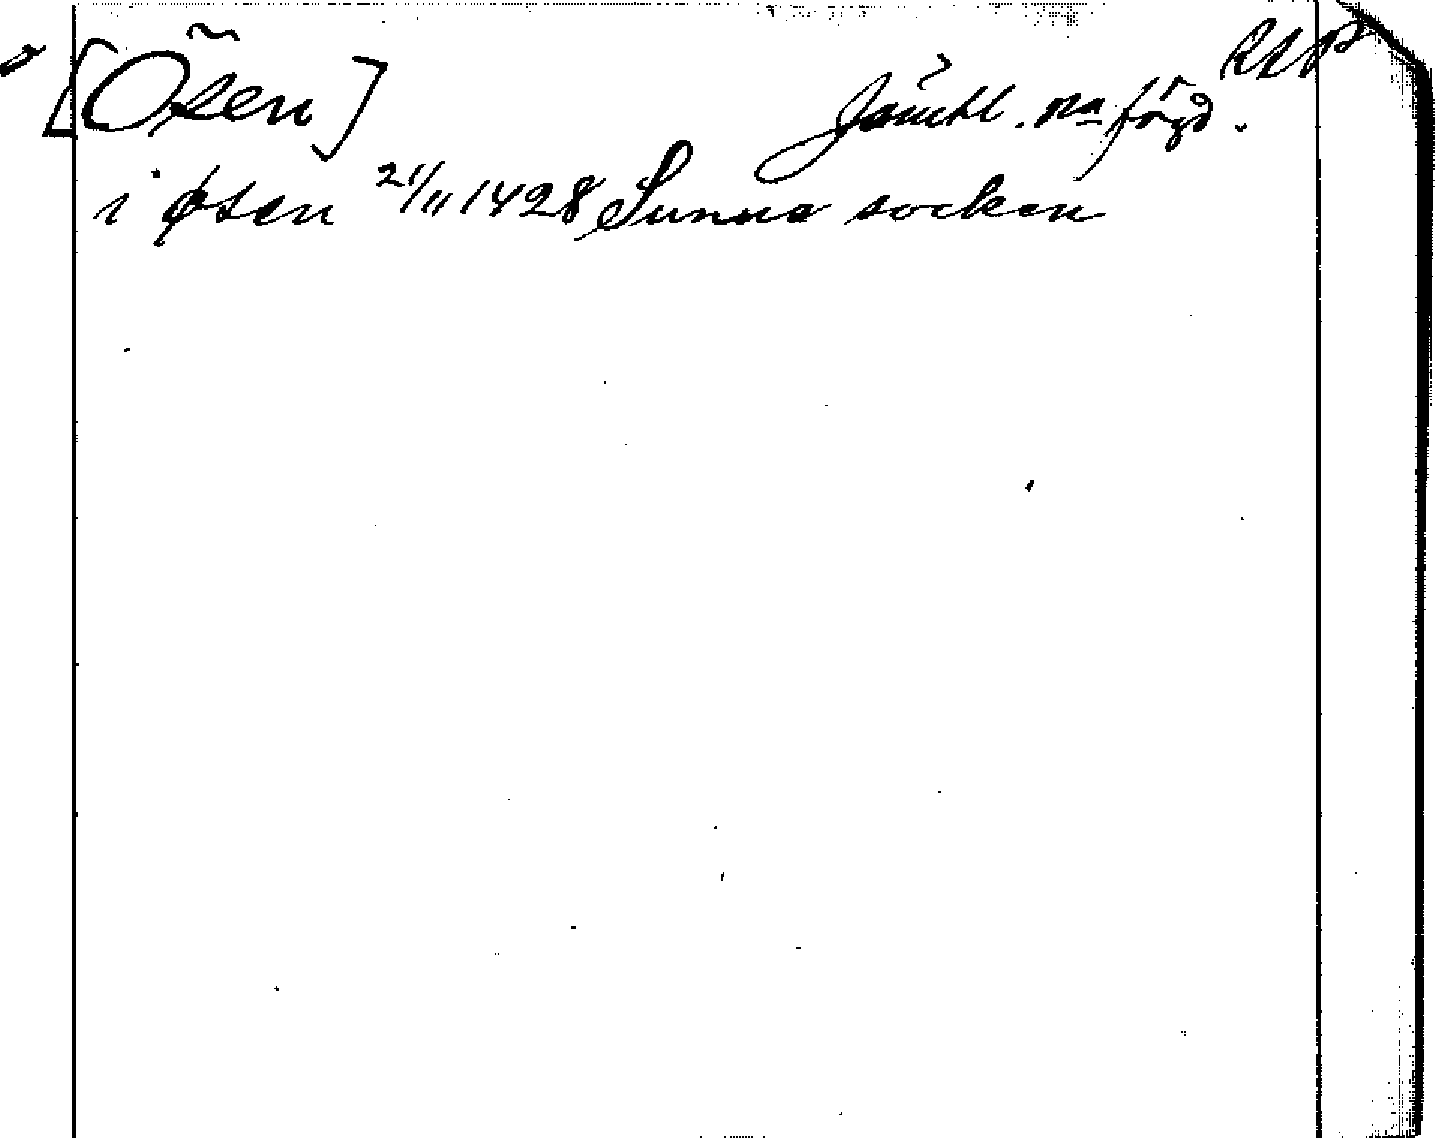 [Ösen] Jämtl. Na fögd.
i øsen 21/11 1428 Sunne socken